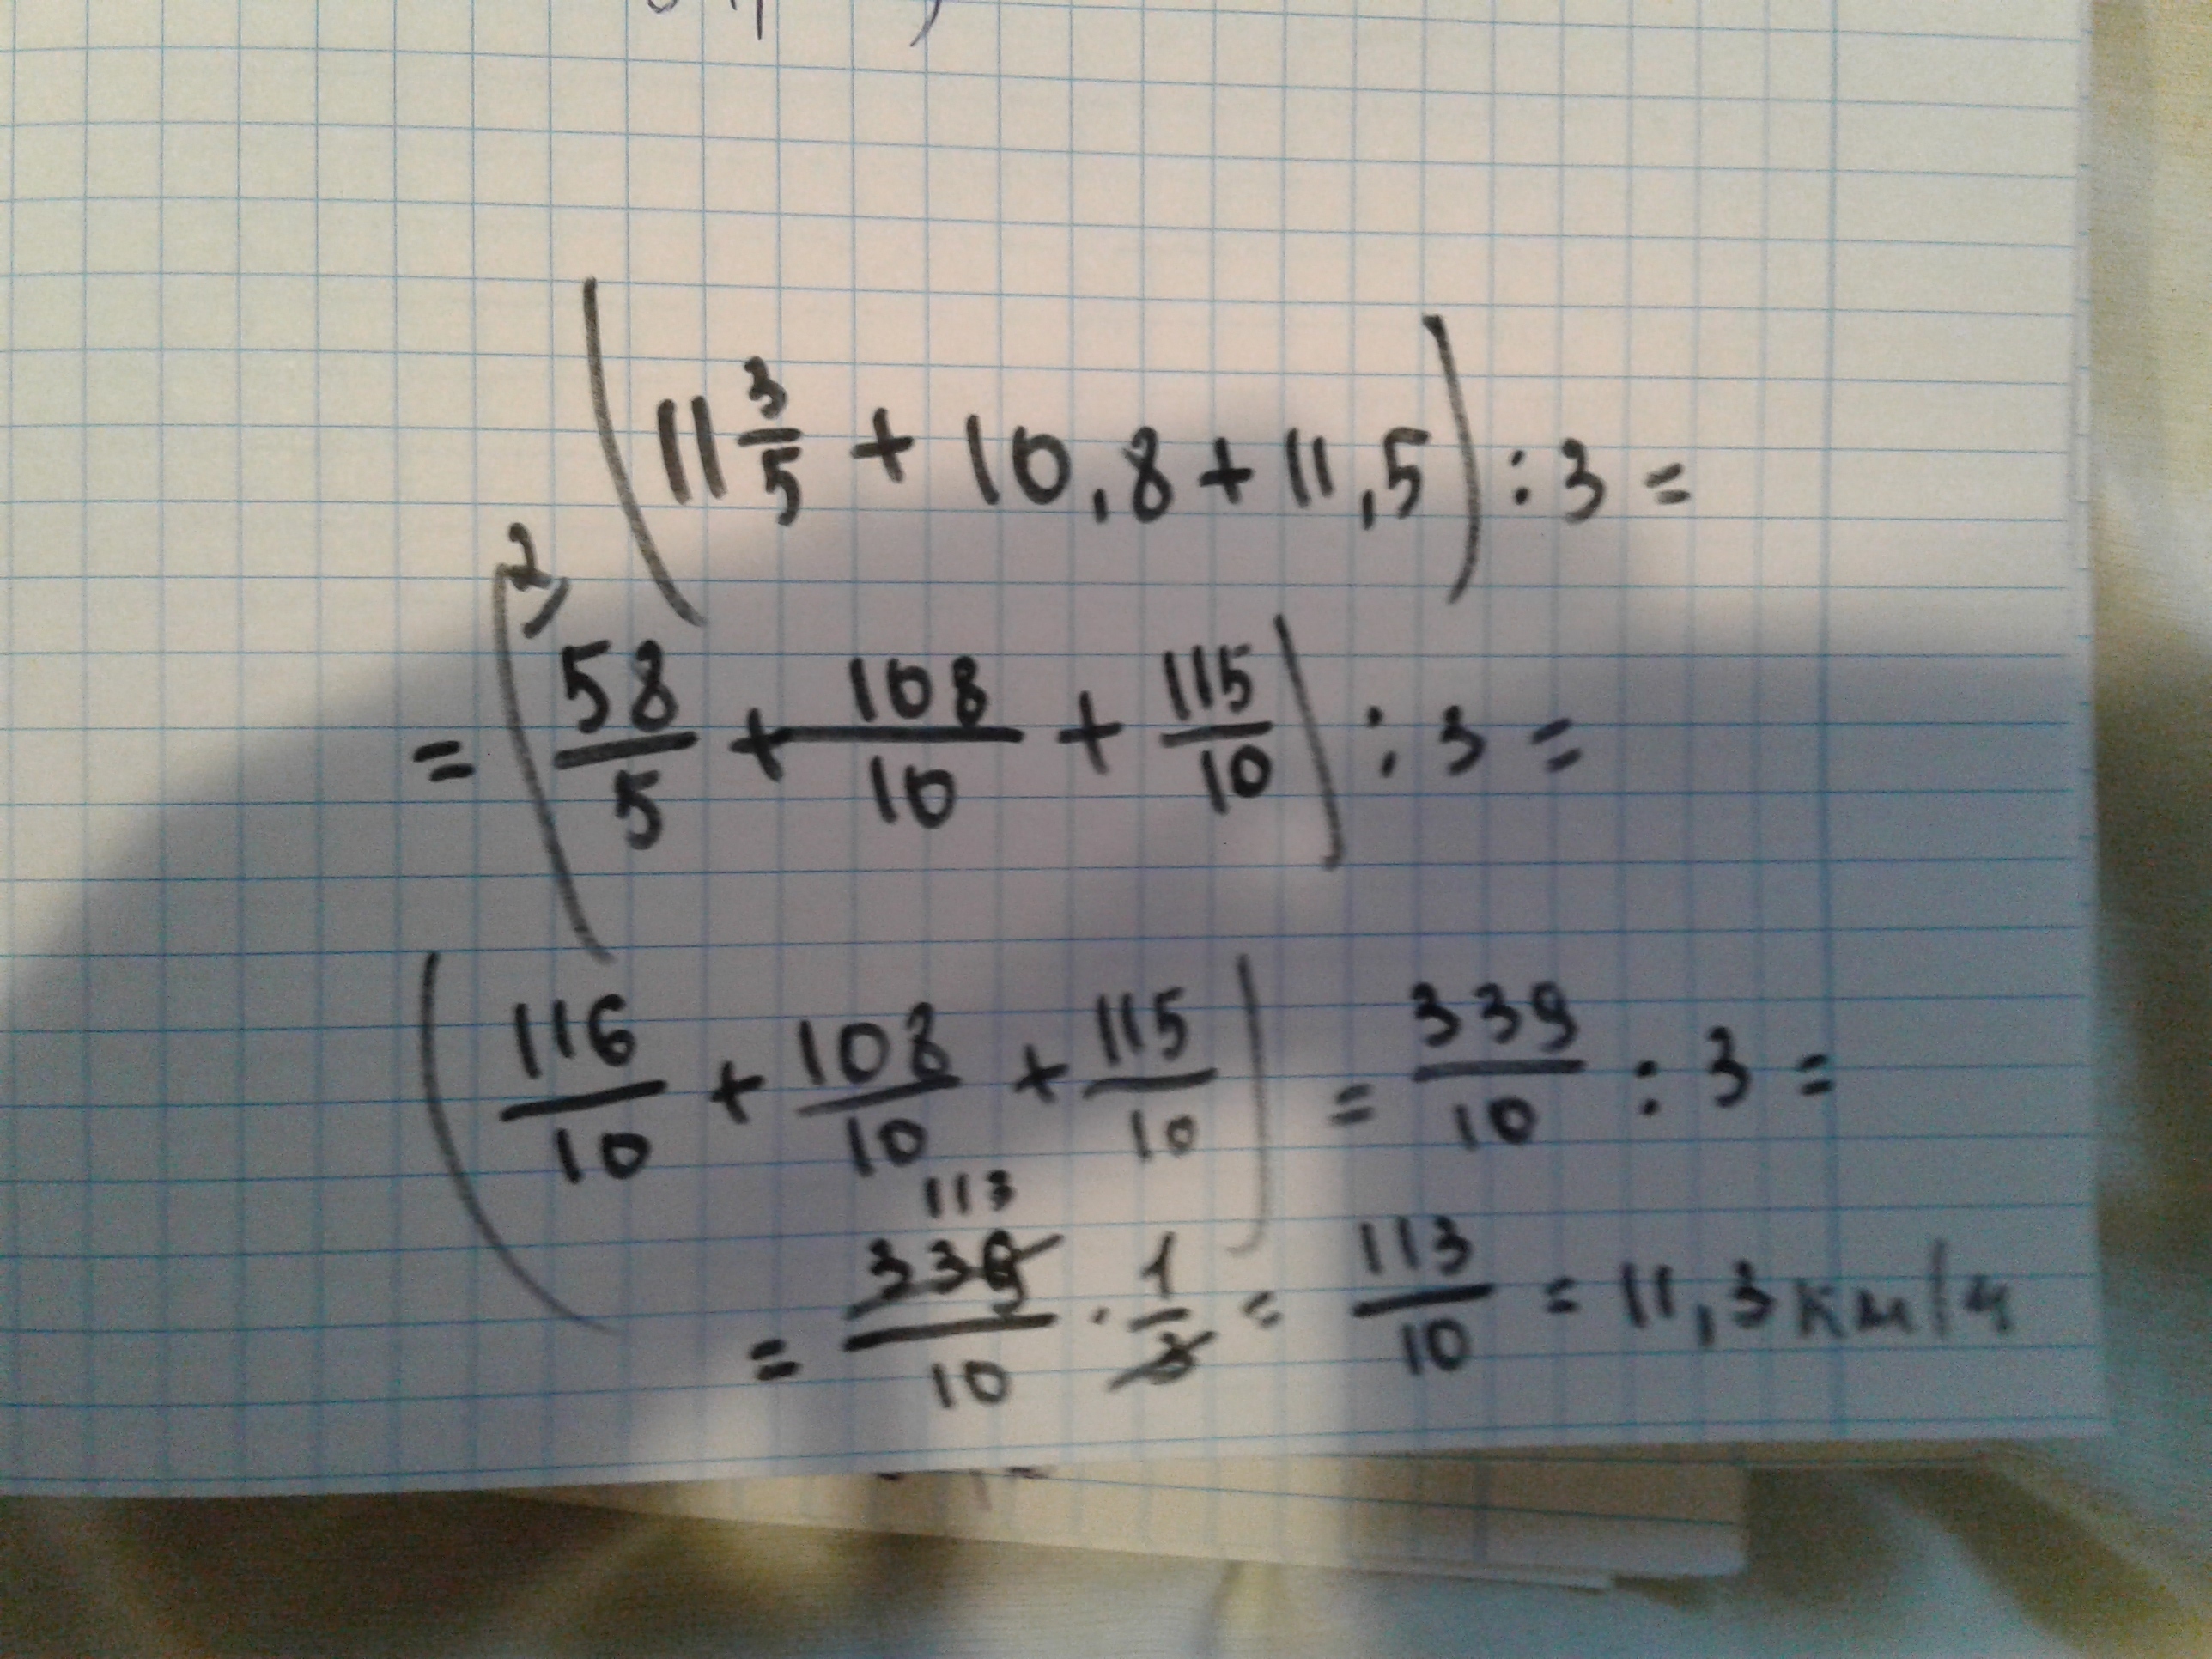 (11 3/5 + 10,8 + 11,5) : 3 =
2
= (58/5 + 108/10 + 115/10) : 3 =
(116/10 + 108/10 + 115/10) = 339/10 : 3 =
113
= 339/10 · 1/3 = 113/10 = 11,3 км/ч